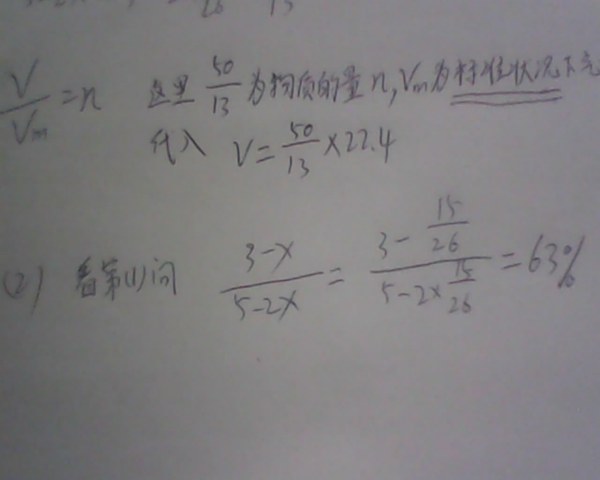 26 13
V/Vm=n 这里 50/13 为物质的量 n,Vm为标准状况下
代入 V=50/13×22.4
(2) 看第(1)问 3-x/5-2x = 3-15/26/5-2×15/26 =63%